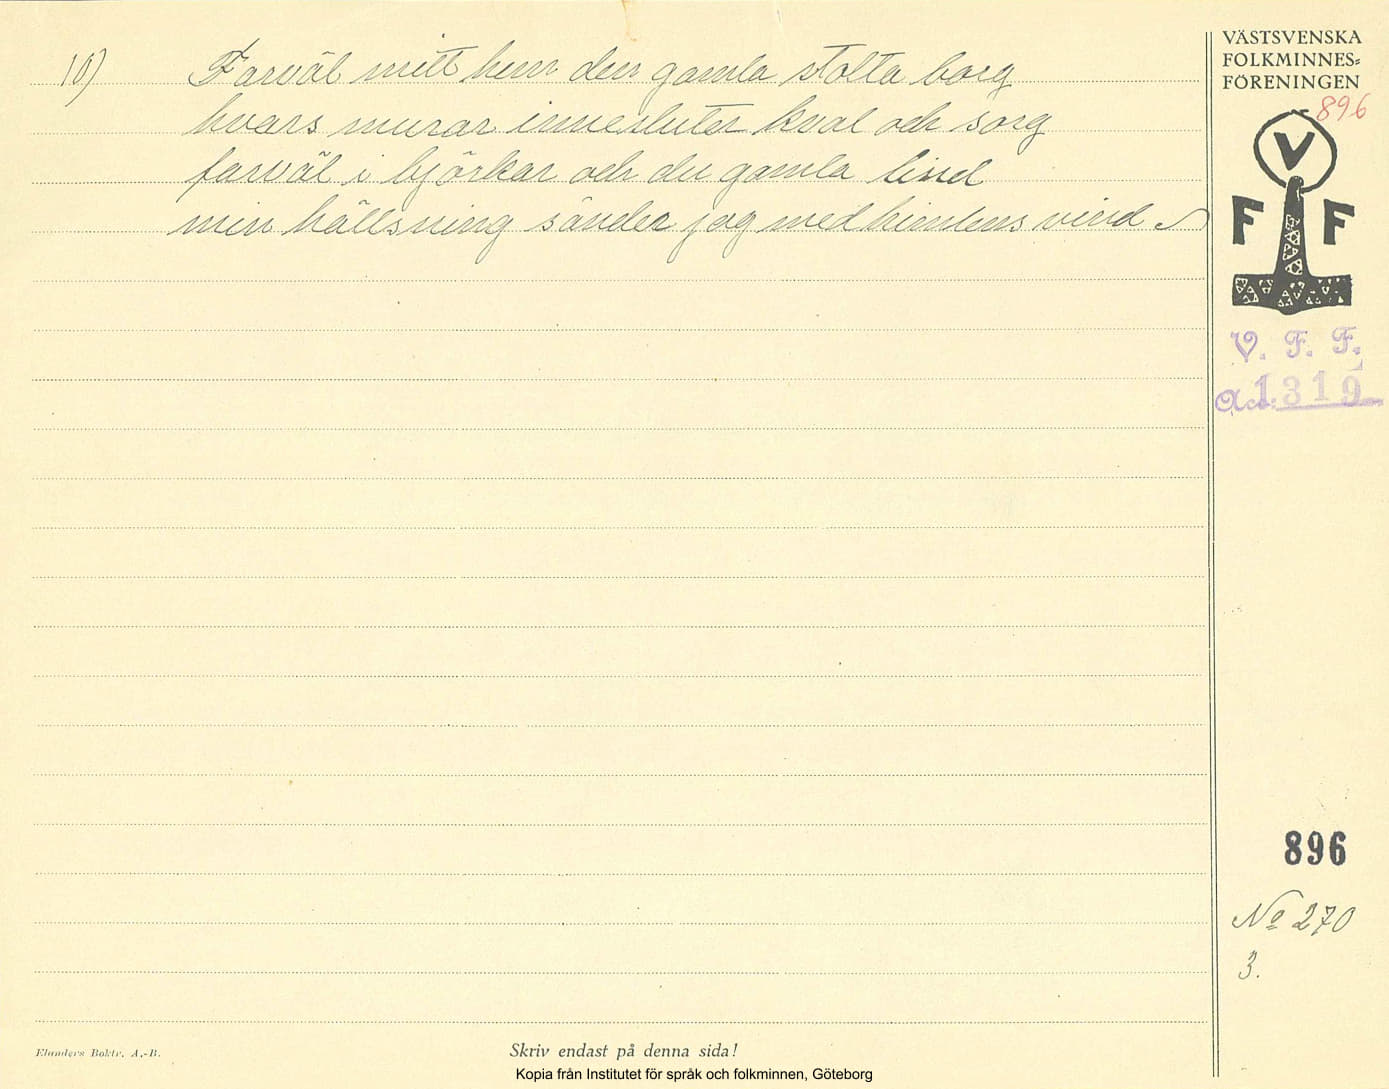 10) Farväl mitt hem den gamla stolta borg
hvars murar innesluter kval och sorg
farväl i björkar och du gamla lind
min hällsning sänder jag med himlens vind
VÄSTSVENSKA
FOLKMINNES-
FÖRENINGEN
896
V
F F
V. F. F.
Acc. 1319
896
No 270
3.
Elanders Boktr. A.-B.
Skriv endast på denna sida!
Kopia från Institutet för språk och folkminnen, Göteborg